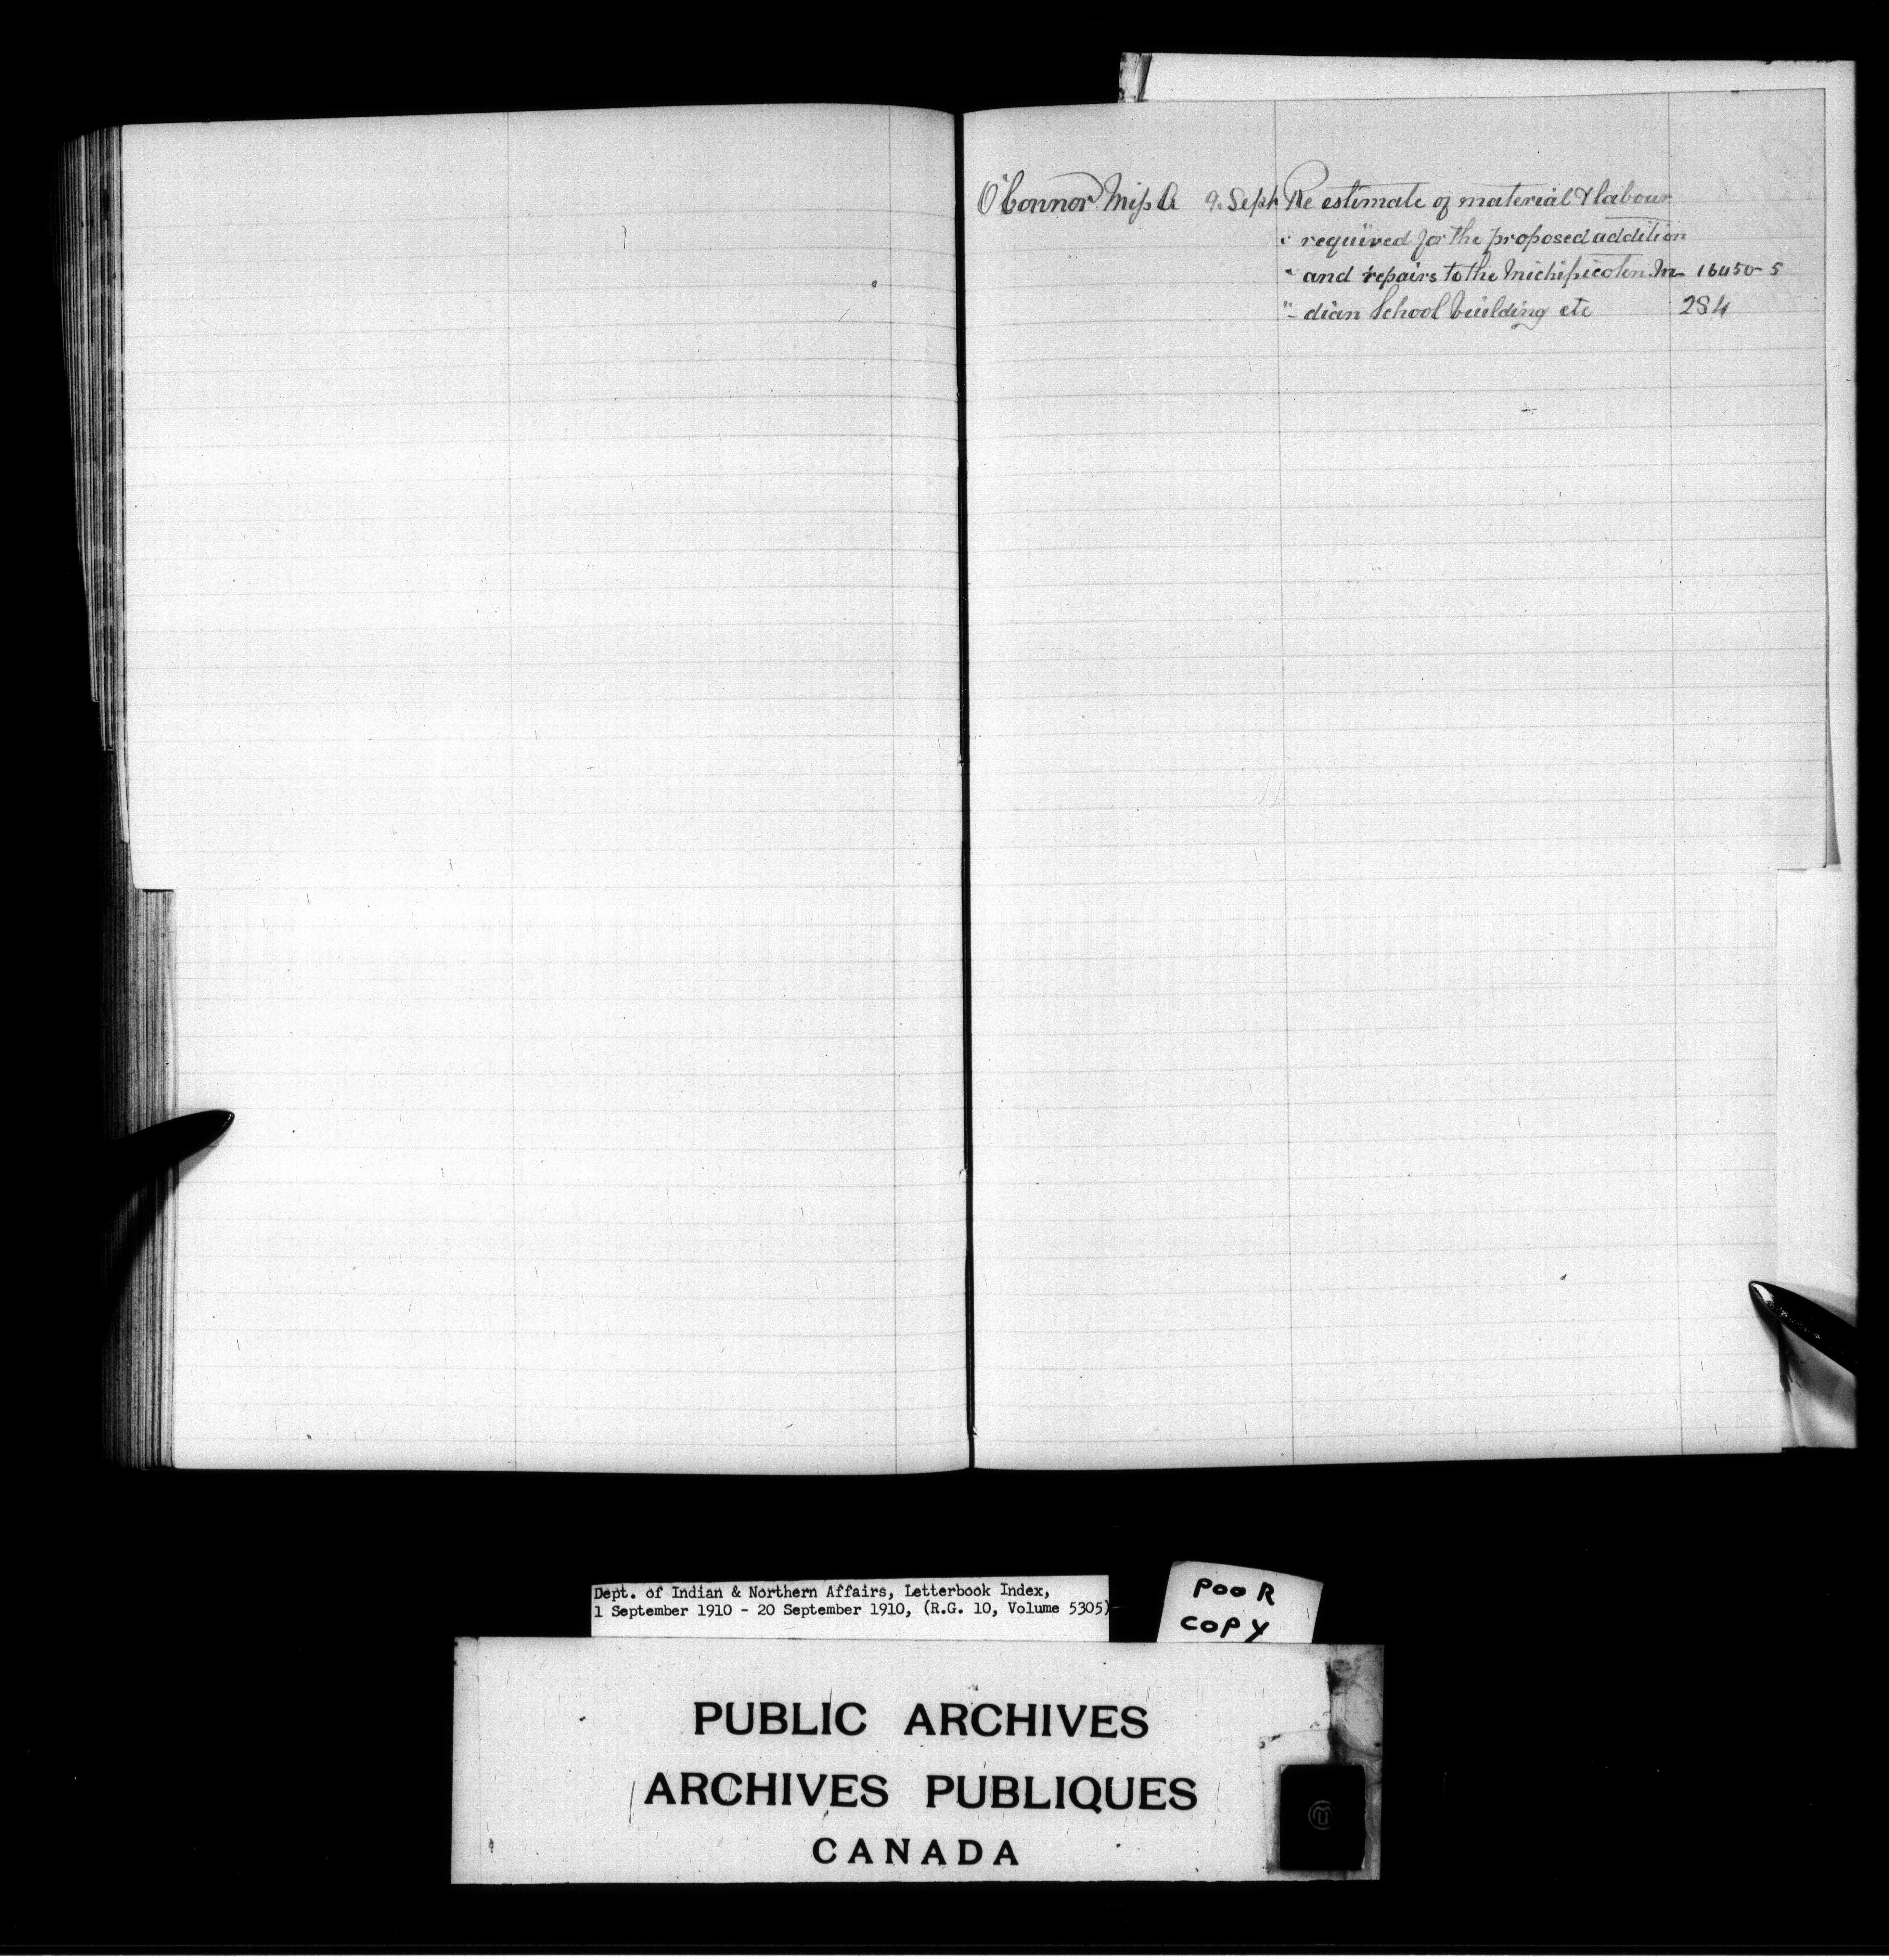 O'Connor Miss A 9. Sept Re estimate of material & labour
" required for the proposed addition
" and repairs to the Michipicoten In- 16450-5
" - dian School building etc 284
Dept. of Indian & Northern Affairs, Letterbook Index,
1 September 1910 - 20 September 1910, (R.G. 10, Volume 5305)
POOR
COPY
PUBLIC ARCHIVES
ARCHIVES PUBLIQUES
CANADA